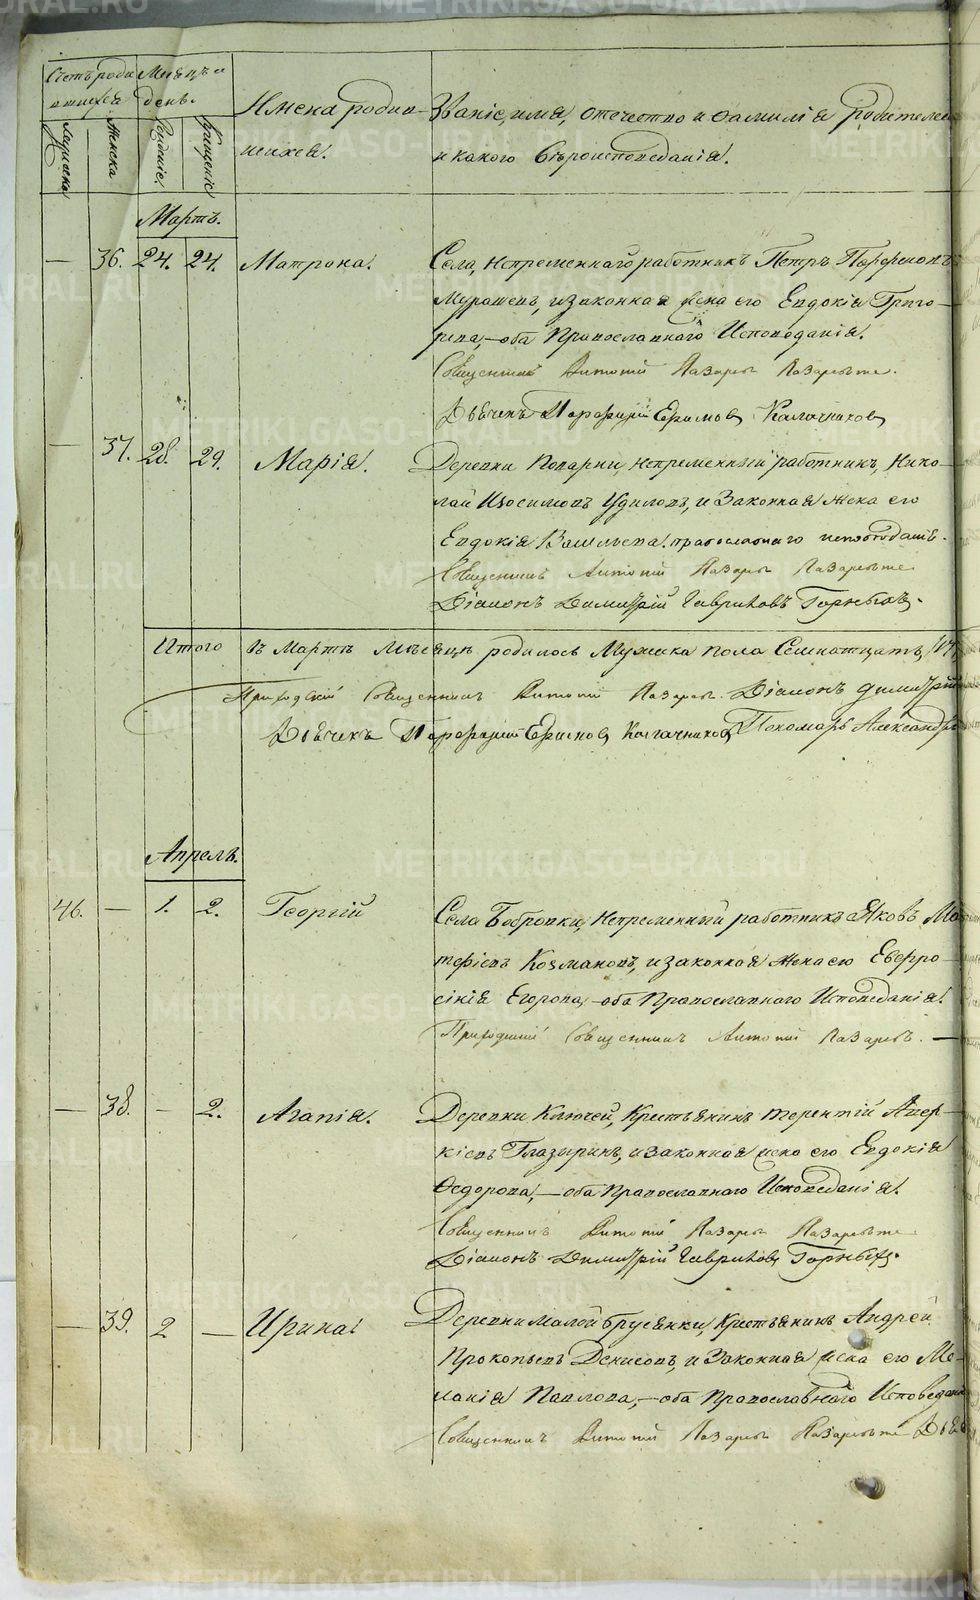 Счетъ роди
вшихся
Мѣсяцъ и
день.
Мужска
Женска
Рожденіе.
Крещеніе.
Имена родив-
шихся.
Званіе, имя, отечество и фамилія родителей
и какого вѣроисповеданія.
Мартъ.
— 36. 24. 24. Матрона. Села, непременнаго работникъ Петръ
Мурашевъ, и законная жена его Евдокія Григо-
рьева, — оба Православнаго Исповеданія.
Священникъ Антоній Лазаревъ
Дьячекъ Порфирій Ефимовъ Калачниковъ
— 37. 28. 29. Марія. Деревни Поварни, непременный работникъ, Нико-
лай Изосимовъ Удиловъ, и Законная жена его
Евдокія Васильева. православнаго исповѣданія.
Священникъ Антоній Лазаревъ
Діаконъ Димитрій Гавриловъ Горныхъ.
Итого въ Мартѣ Мѣсяцѣ родилось Мужска пола Семнатцать, 17,
Приходскій Священникъ Антоній Лазаревъ. Діаконъ Димитрій
Дьячекъ Порфирій Ефимовъ Калачниковъ Пономарь Александръ
Апрель.
46. — 1. 2. Георгій Села Бобровки, непременный работникъ Яковъ Ма-
тфѣевъ Козмановъ, и законная жена его Евфро-
сінія Егорова, — оба Православнаго Исповеданія.
Приходскій Священникъ Антоній Лазаревъ. —
— 38. — 2. Агапія. Деревни Ключей, Крестьянинъ Терентій Авер-
кіевъ Глазыринъ, и законная жена его Евдокія
Ѳедорова, — оба Православнаго Исповеданія.
Священникъ Антоній Лазаревъ
Діаконъ Димитрій Гавриловъ Горныхъ.
— 39. 2 — Ирина. Деревни Малой Брусянки, Крестьянинъ Андрей
Прокопьевъ Денисовъ, и Законная жена его Ме-
ланія Павлова, — оба Православнаго Исповедан
Священникъ Антоній Лазаревъ
METRIKI.GASO-URAL.RU